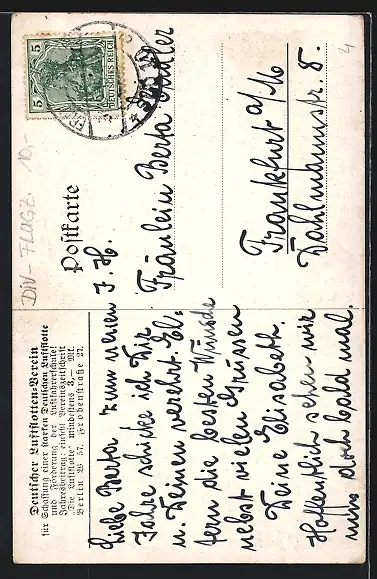 Deutscher Luftflotten-Verein
für Schaffung einer starken Deutschen Luftflotte
und Förderung der Luftfahrerschule!
Jahresbeitrag einschl. Vereinszeitschrift
„Die Luftflotte" mindestens 3,— Mk.
Berlin W 57. Frobenstraße 27.
Liebe Berta zum neuen
Jahre schicke ich Dir
u. Deinen verehrt. El-
tern die besten Wünsche
nebst vielen Grüssen
Deine Elisabeth.
Hoffentlich sehen wir
uns doch bald mal.
Postkarte
I. H.
Fräulein Berta
Frankfurt a/M
Dahlmannstr. 8.
5
5
DEUTSCHES REICH
DIV-FLUGZ. 10.-
4